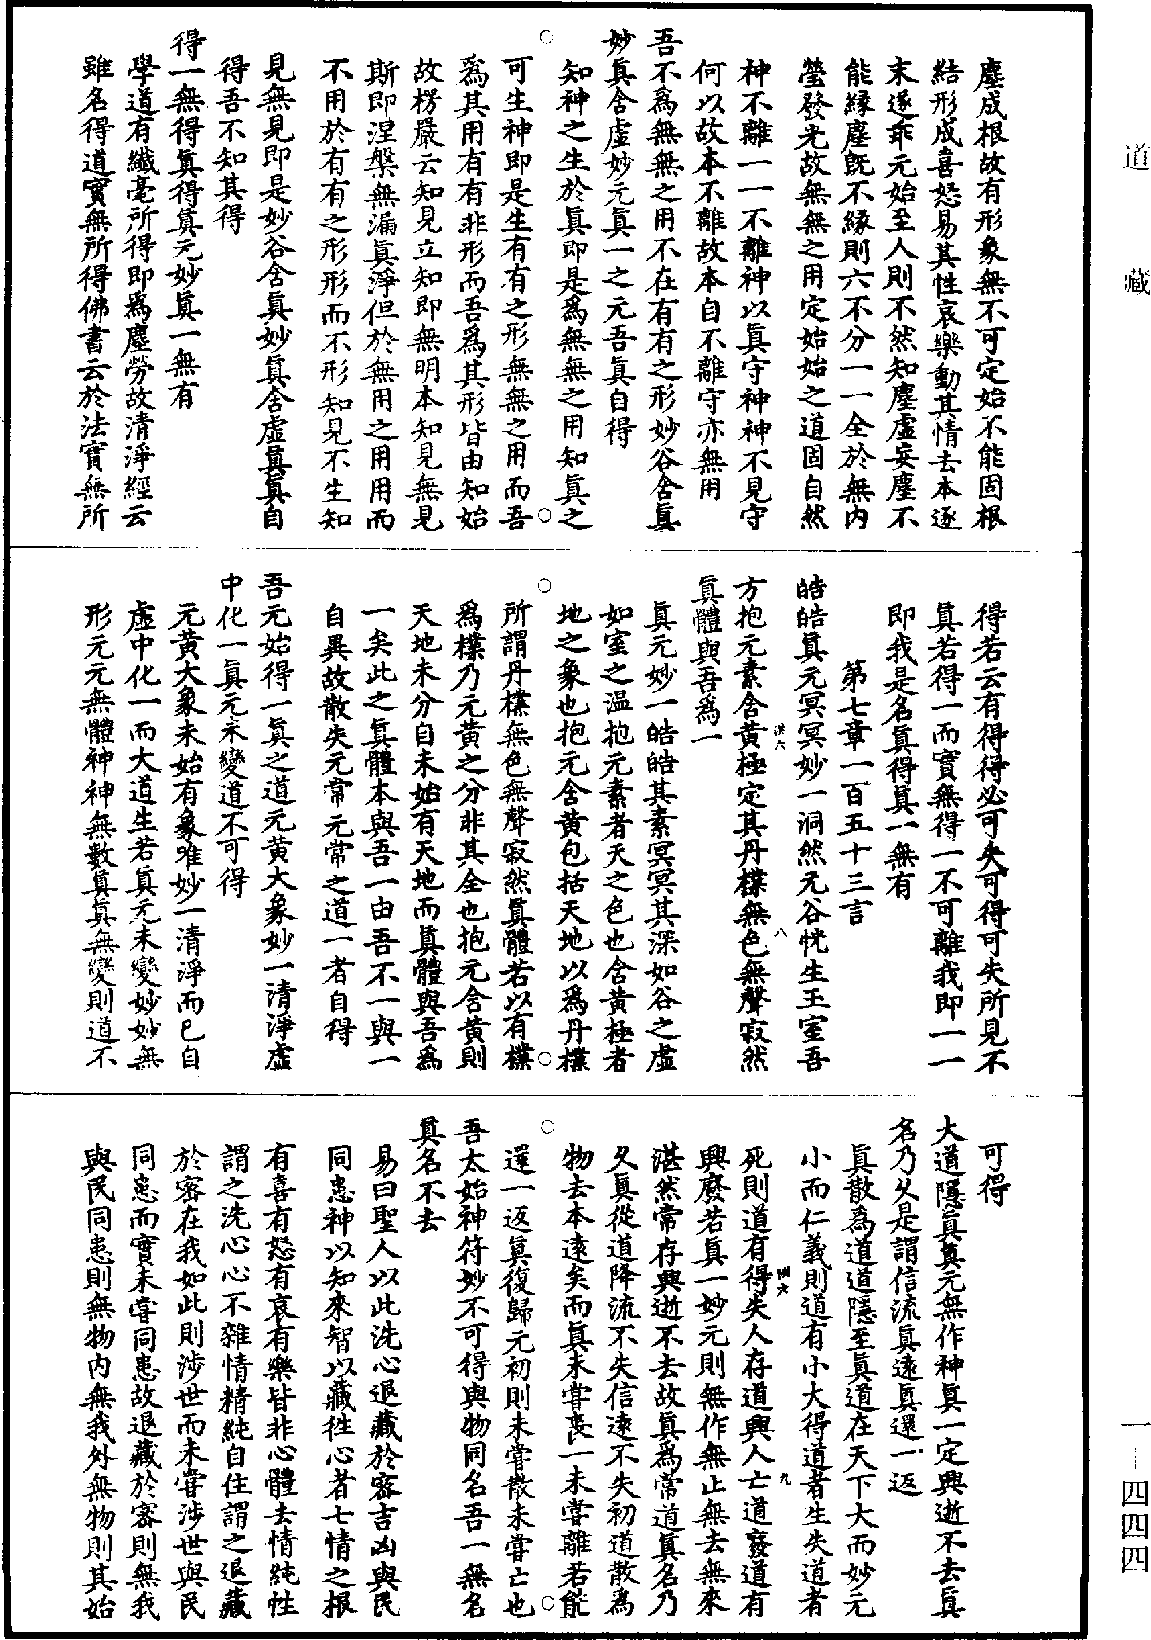 道藏
塵成根故有形象無不可定始不能固根
結形成喜怒易其性哀樂動其情去本逐
末遂乖元始至人則不然知塵虛妄塵不
能緣塵既不緣則六不分一一全於無內
瑩發光故無無之用定始始之道固自然
神不離一一不離神以真守神神不見守
何以故本不離故本自不離守亦無用
吾不爲無無之用不在有有之形妙谷含真
妙真含虛妙元真一之元吾真自得
知神之生於真即是爲無無之用知真之
可生神即是生有有之形無無之用而吾
爲其用有有非形而吾爲其形皆由知始
故楞嚴云知見立知即無明本知見無見
斯即涅槃無漏真淨但於無用之用用而
不用於有有之形形而不形知見不生知
見無見即是妙谷含真妙真含虛真真自
得吾不知其得
得一無得真得真元妙真一無有
學道有纖毫所得即爲塵勞故清淨經云
雖名得道實無所得佛書云於法實無所
得若云有得得必可失可得可失所見不
真若得一而實無得一不可離我即一一
即我是名真得真一無有
第七章一百五十三言
皓皓真元冥冥妙一洞然元谷恍生玉室吾
方抱元素含黃極定其丹樸無色無聲寂然
真體與吾爲一
真元妙一皓皓其素冥冥其深如谷之虛
如室之溫抱元素者天之色也含黃極者
地之象也抱元含黃包括天地以爲丹樸
所謂丹樸無色無聲寂然真體若以有樸
爲樸乃元黃之分非其全也抱元含黃則
天地未分自未始有天地而真體與吾爲
一矣此之真體本與吾一由吾不一與一
自異故散失元常元常之道一者自得
吾元始得一真之道元黃大象妙一清淨虛
中化一真元未變道不可得
元黃大象未始有象唯妙一清淨而已自
虛中化一而大道生若真元未變妙妙無
形元元無體神神無數真真無變則道不
可得
大道隱真真元無作神真一定興逝不去真
名乃久是謂信流真遠真還一返
真散爲道道隱至真道在天下大而妙元
小而仁義則道有小大得道者生失道者
死則道有得失人存道興人亡道廢道有
興廢若真一妙元則無作無止無去無來
湛然常存興逝不去故真爲常道真名乃
久真從道降流不失信遠不失初道散爲
物去本遠矣而真未嘗喪一未嘗離若能
還一返真復歸元初則未嘗散未嘗亡也
吾太始神符妙不可得與物同名吾一無名
真名不去
易曰聖人以此洗心退藏於密吉凶與民
同患神以知來智以藏往心者七情之根
有喜有怒有哀有樂皆非心體去情純性
謂之洗心心不雜情精純自住謂之退藏
於密在我如此則涉世而未嘗涉世與民
同患而實未嘗同患故退藏於密則無我
與民同患則無物內無我外無物則其始
一—四四四